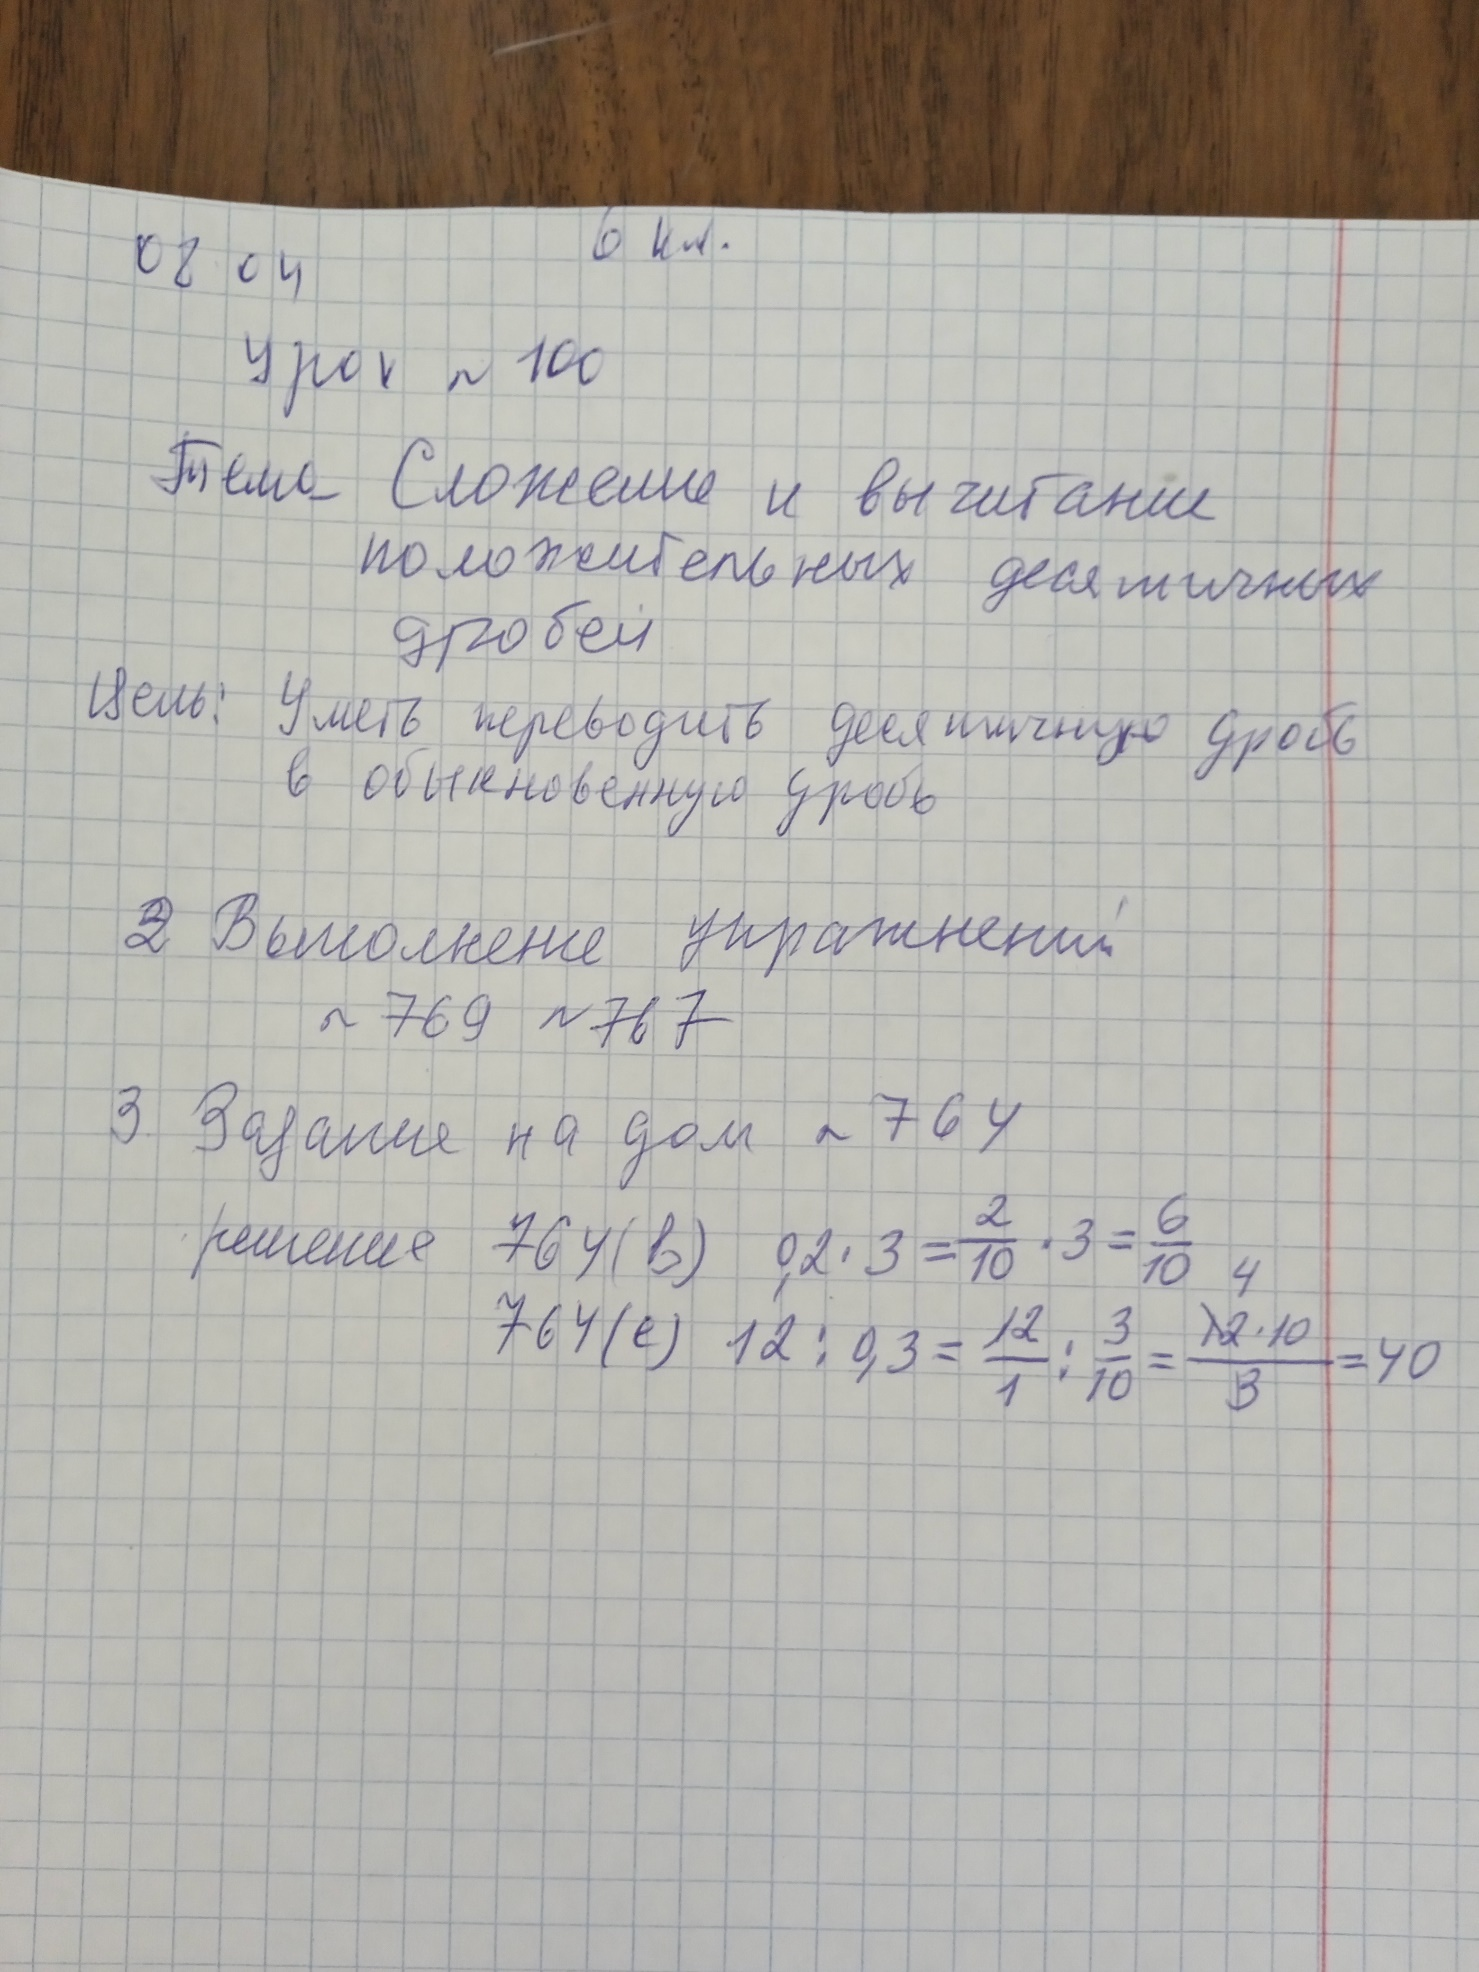 02 04 6 кл.
Урок ~ 100
Тема Сложение и вычитание
положительных десятичных
дробей
Цель: Уметь переводить десятичную дробь
в обыкновенную дробь
2 Выполнение упражнений
~ 769 ~ 767
3 Задание на дом ~ 764
решение 764(в) 0,2 · 3 = 2/10 · 3 = 6/10
764(е) 12 : 0,3 = 12/1 : 3/10 = 12·10/3 = 40
4